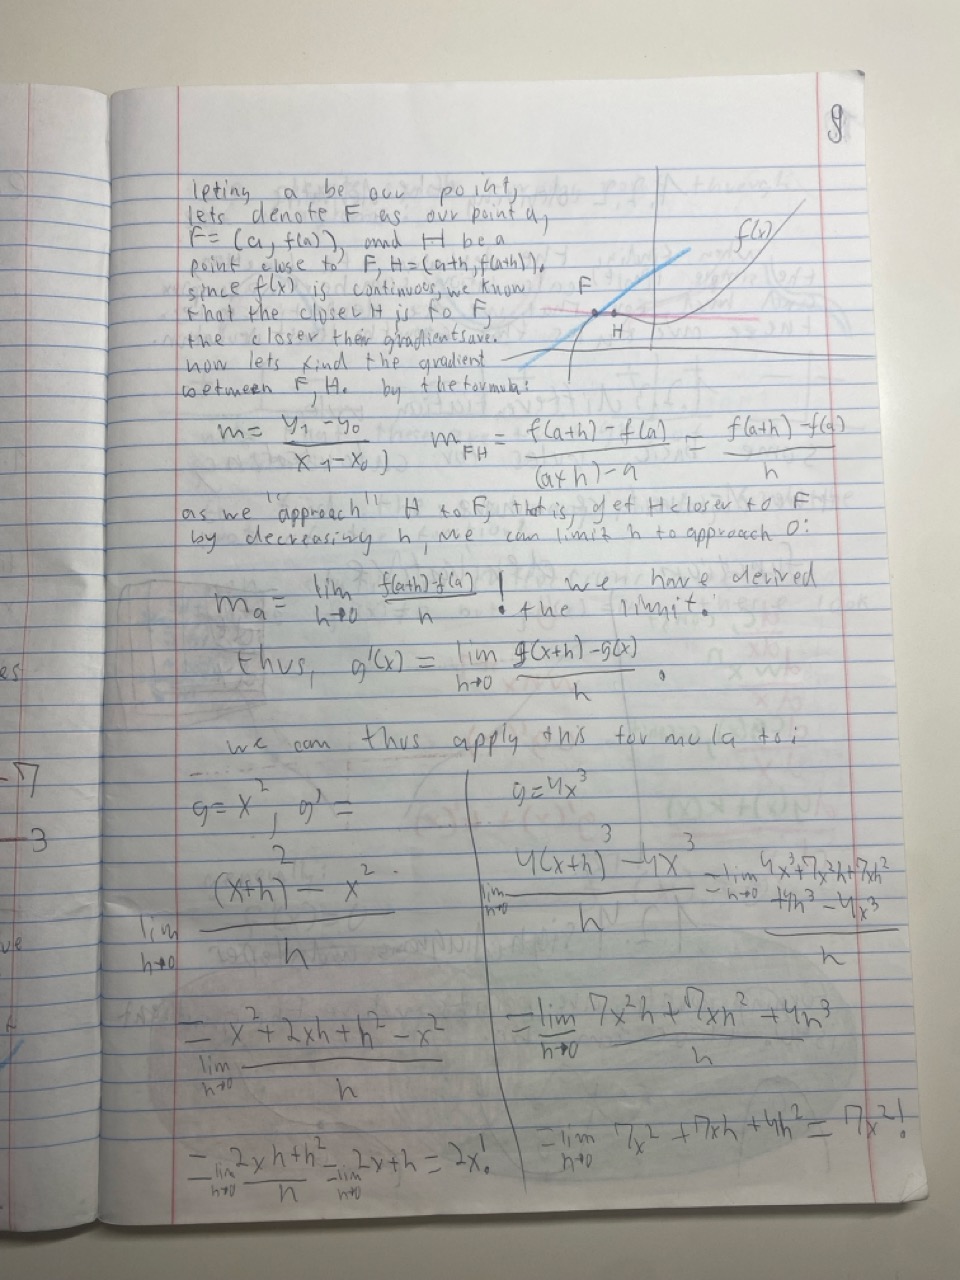 8
leting a be our point,
lets denote F as our point a,
F = (a, f(a)), and H be a
point close to F, H = (a+h, f(a+h)).
since f(x) is continuous, we know
that the closer H is to F,
the closer their gradients are.
now lets find the gradient
between F, H. by the formula:
f(x)
F
H
m = (y₁ - y₀)/(x₁ - x₀), m_FH = (f(a+h) - f(a))/((a+h) - a) = (f(a+h) - f(a))/h
as we "approach" H to F, that is, get H closer to F
by decreasing h, we can limit h to approach 0:
m_a = lim h→0 (f(a+h) - f(a))/h ! we have derived
the limit.
thus, g'(x) = lim h→0 (g(x+h) - g(x))/h.
we can thus apply this formula to:
g = x², g' =
lim h→0 ((x+h)² - x²)/h
= lim h→0 (x² + 2xh + h² - x²)/h
= lim h→0 (2xh + h²)/h = lim h→0 2x + h = 2x!
g = 4x³
lim h→0 (4(x+h)³ - 4x³)/h = lim h→0 (4x³ + 7x²h + 7xh² + 4h³ - 4x³)/h
= lim h→0 (7x²h + 7xh² + 4h³)/h
= lim h→0 7x² + 7xh + 4h² = 7x²!
es
-7
3
ve